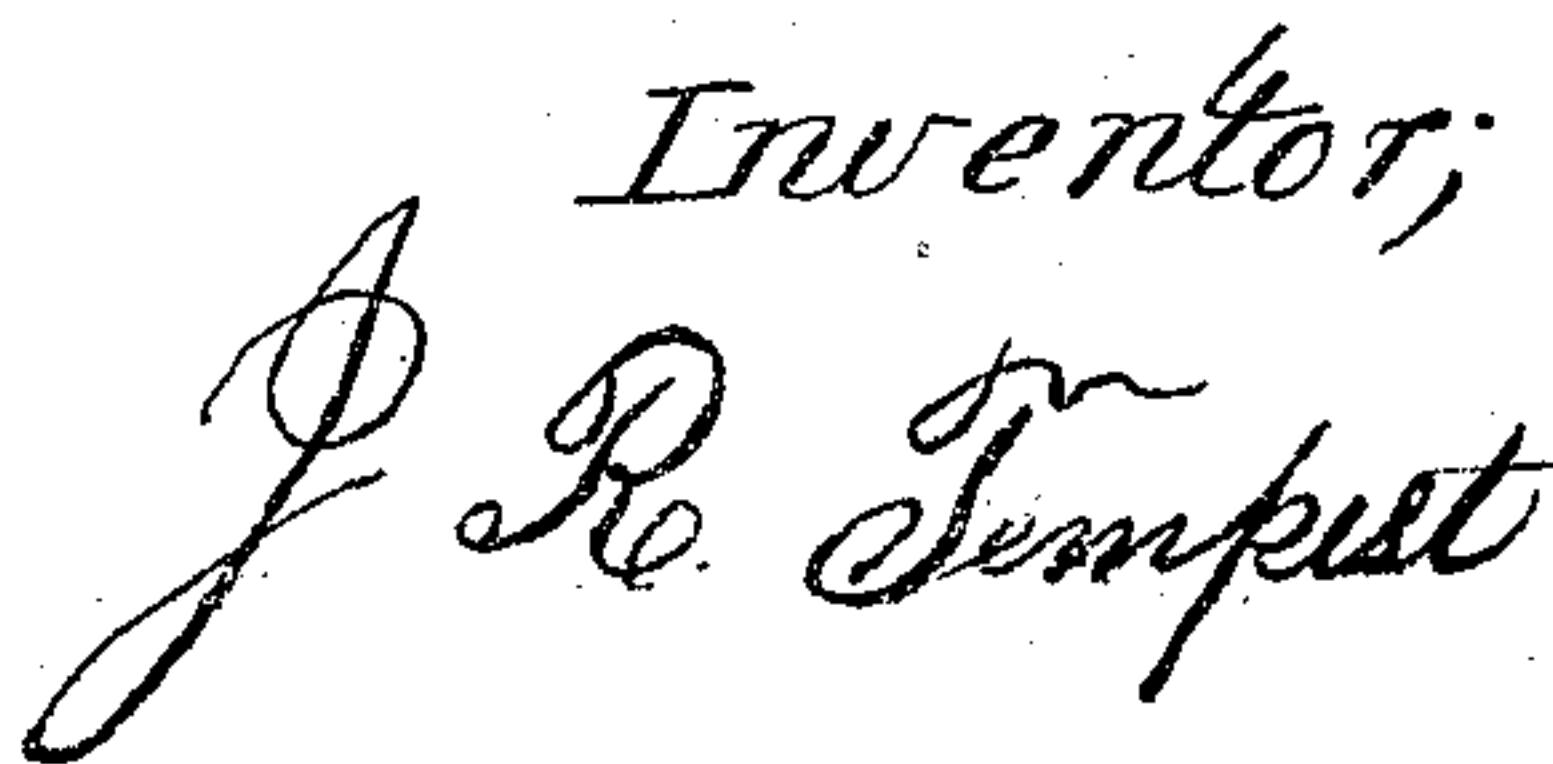 Inventor;
J R. Tempest